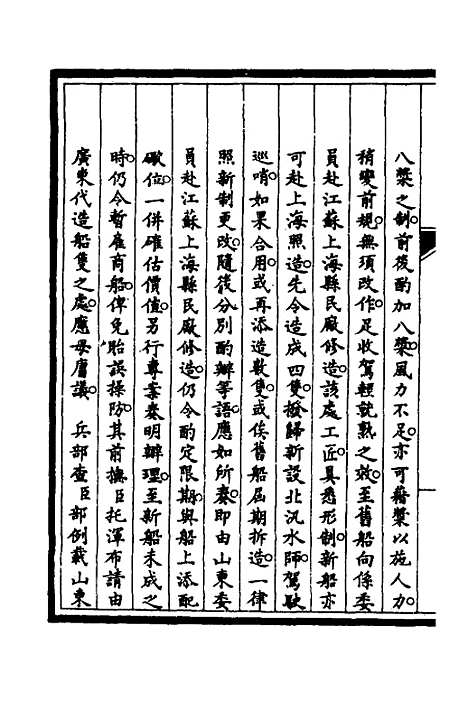 八槳之制前後酌加八槳風力不足亦可藉槳以施人力
稍變前規無須改作足收駕輕就熟之效至舊船向係委
員赴江蘇上海縣民廠修造該處工匠具悉形制新船亦
可赴上海照造先令造成四隻撥歸新設北汛水師駕駛
巡哨如果合用或再添造數隻或俟舊船屆期拆造一律
照新制更改隨後分別酌辦等語應如所奏即由山東委
員赴江蘇上海縣民廠修造仍令酌定限期與船上添配
礮位一併確估價值另行專案奏明辦理至新船未成之
時仍令暫雇商船俾免貽誤操防其前撫臣托渾布請由
廣東代造船隻之處應毋庸議　兵部查臣部例載山東